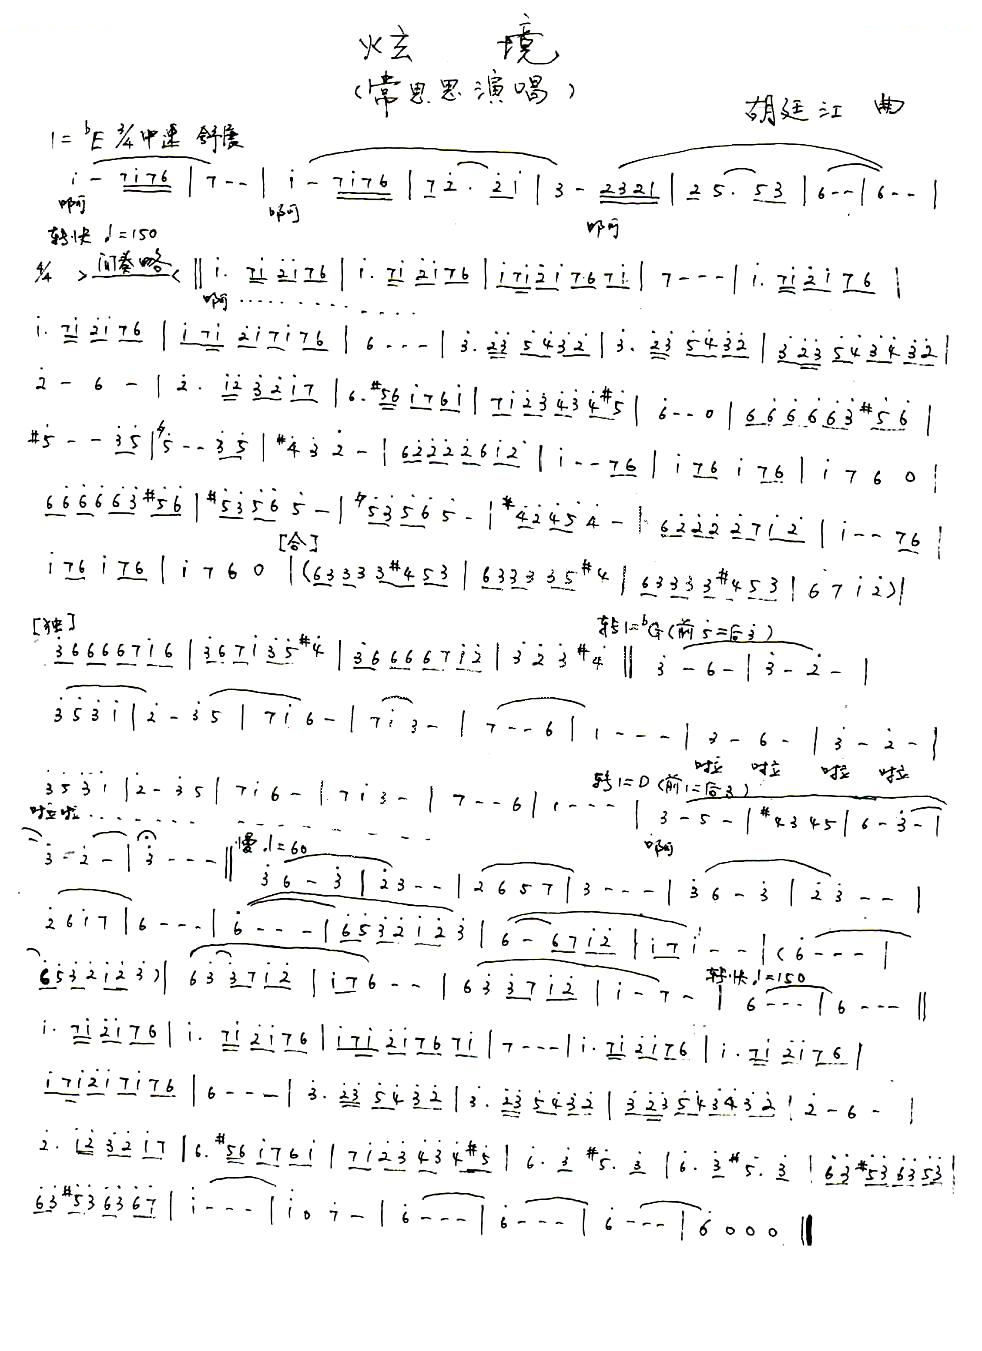 炫 境
(常思思演唱)
胡廷江 曲
1=ᵇE 3/4 中速 舒展
i̇ - 7 i̇ 7 6 | 7 - - | i̇ - 7 i̇ 7 6 | 7 2̇ · 2̇ i̇ | 3 - 2 3 2 1 | 2 5 · 5 3 | 6 - - | 6 - - |
啊 啊 啊
转快 ♩=150
4/4 > 间奏略 < || i̇ · 7 i̇ 2̇ i̇ 7 6 | i̇ · 7 i̇ 2̇ i̇ 7 6 | i̇ 7 i̇ 2̇ i̇ 7 6 7 i̇ | 7 - - - | i̇ · 7 i̇ 2̇ i̇ 7 6 |
啊 · · · · · · · · ·
i̇ · 7 i̇ 2̇ i̇ 7 6 | i̇ 7 i̇ 2̇ i̇ 7 i̇ 7 6 | 6 - - - | 3̇ · 2̇ 3̇ 5̇ 4̇ 3̇ 2̇ | 3̇ · 2̇ 3̇ 5̇ 4̇ 3̇ 2̇ | 3̇ 2̇ 3̇ 5̇ 4̇ 3̇ 4̇ 3̇ 2̇ |
2̇ - 6 - | 2̇ · i̇ 2̇ 3̇ 2̇ i̇ 7 | 6 · #5 6 i̇ 7 6 i̇ | 7 i̇ 2̇ 3̇ 4̇ 3̇ 4̇ #5̇ | 6̇ - - 0 | 6̇ 6̇ 6̇ 6̇ 6̇ 3̇ #5̇ 6̇ |
#5̇ - - 3̇ 5̇ | ♮5̇ - - 3̇ 5̇ | #4̇ 3̇ 2̇ - | 6 2̇ 2̇ 2̇ 2̇ 6 i̇ 2̇ | i̇ - - 7 6 | i̇ 7 6 i̇ 7 6 | i̇ 7 6 0 |
6̇ 6̇ 6̇ 6̇ 6̇ 3̇ #5̇ 6̇ | #5̇ 3̇ 5̇ 6̇ 5̇ - | ♮5̇ 3̇ 5̇ 6̇ 5̇ - | #4̇ 2̇ 4̇ 5̇ 4̇ - | 6 2̇ 2̇ 2̇ 2̇ 7 i̇ 2̇ | i̇ - - 7 6 |
[合]
i̇ 7 6 i̇ 7 6 | i̇ 7 6 0 | (6 3 3 3 3 #4 5 3 | 6 3 3 3 3 5 #4 | 6 3 3 3 3 #4 5 3 | 6 7 i̇ 2̇) |
[独] 转1=ᵇG (前5̇=后3̇)
3̇ 6 6 6 6 7 i̇ 6 | 3̇ 6 7 i̇ 3̇ 5̇ #4̇ | 3̇ 6 6 6 6 7 i̇ 2̇ | 3̇ 2̇ 3̇ #4̇ || 3̇ - 6 - | 3̇ - 2̇ - |
3̇ 5̇ 3̇ i̇ | 2̇ - 3̇ 5̇ | 7 i̇ 6 - | 7 i̇ 3 - | 7 - - 6 | 1 - - - | 3 - 6 - | 3̇ - 2̇ - |
啦 啦 啦 啦
转1=D (前1=后3)
3̇ 5̇ 3̇ i̇ | 2̇ - 3̇ 5̇ | 7 i̇ 6 - | 7 i̇ 3 - | 7 - - 6 | 1 - - - | 3 - 5 - | #4 3 4 5 | 6 - 3̇ - |
啦啦 · · · · · · · · · · · 啊
慢 ♩=60
3̇ - 2̇ - | 3̇ - - - || 3̇ 6 - 3̇ | 2̇ 3 - - | 2 6 5 7 | 3 - - - | 3̇ 6 - 3̇ | 2̇ 3̇ - - |
2̇ 6 i̇ 7 | 6 - - - | 6̇ - - - | 6̇ 5̇ 3̇ 2̇ i̇ 2̇ 3̇ | 6 - 6 7 i̇ 2̇ | i̇ 7 i̇ - - | (6̇ - - - |
转快 ♩=150
6̇ 5̇ 3̇ 2̇ i̇ 2̇ 3̇) | 6 3̇ 3̇ 7 i̇ 2̇ | i̇ 7 6 - - | 6 3̇ 3̇ 7 i̇ 2̇ | i̇ - 7 - | 6 - - - | 6 - - - ||
i̇ · 7 i̇ 2̇ i̇ 7 6 | i̇ · 7 i̇ 2̇ i̇ 7 6 | i̇ 7 i̇ 2̇ i̇ 7 6 7 i̇ | 7 - - - | i̇ · 7 i̇ 2̇ i̇ 7 6 | i̇ · 7 i̇ 2̇ i̇ 7 6 |
i̇ 7 i̇ 2̇ i̇ 7 i̇ 7 6 | 6 - - - | 3̇ · 2̇ 3̇ 5̇ 4̇ 3̇ 2̇ | 3̇ · 2̇ 3̇ 5̇ 4̇ 3̇ 2̇ | 3̇ 2̇ 3̇ 5̇ 4̇ 3̇ 4̇ 3̇ 2̇ | 2̇ - 6 - |
2̇ · i̇ 2̇ 3̇ 2̇ i̇ 7 | 6 · #5 6 i̇ 7 6 i̇ | 7 i̇ 2̇ 3̇ 4̇ 3̇ 4̇ #5̇ | 6̇ · 3̇ #5̇ · 3̇ | 6̇ · 3̇ #5̇ · 3̇ | 6̇ 3̇ #5̇ 3̇ 6̇ 3̇ 5̇ 3̇ |
6̇ 3̇ #5̇ 3̇ 6̇ 3̇ 6̇ 7̇ | i̇ - - - | i̇ 0 7̇ - | 6̇ - - - | 6̇ - - - | 6̇ - - - | 6̇ 0 0 0 ||